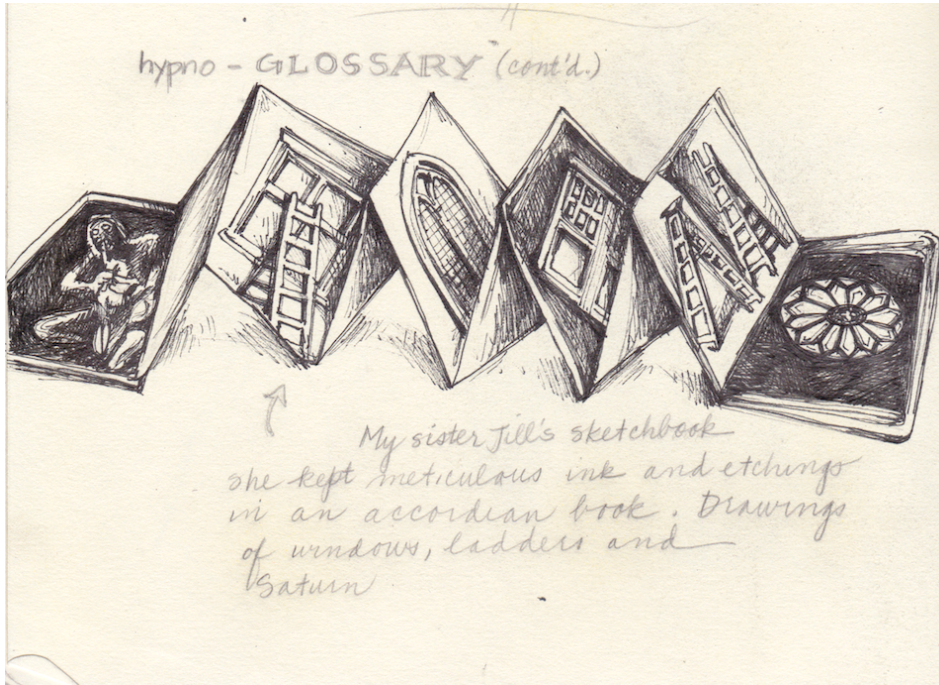 hypno - GLOSSARY (cont'd.)
My sister Jill's sketchbook
she kept meticulous ink and etchings
in an accordian book. Drawings
of windows, ladders and
Saturn